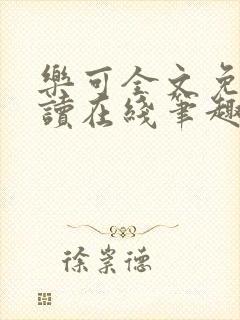 樂可全文免
讀在綫筆趣
徐崇德